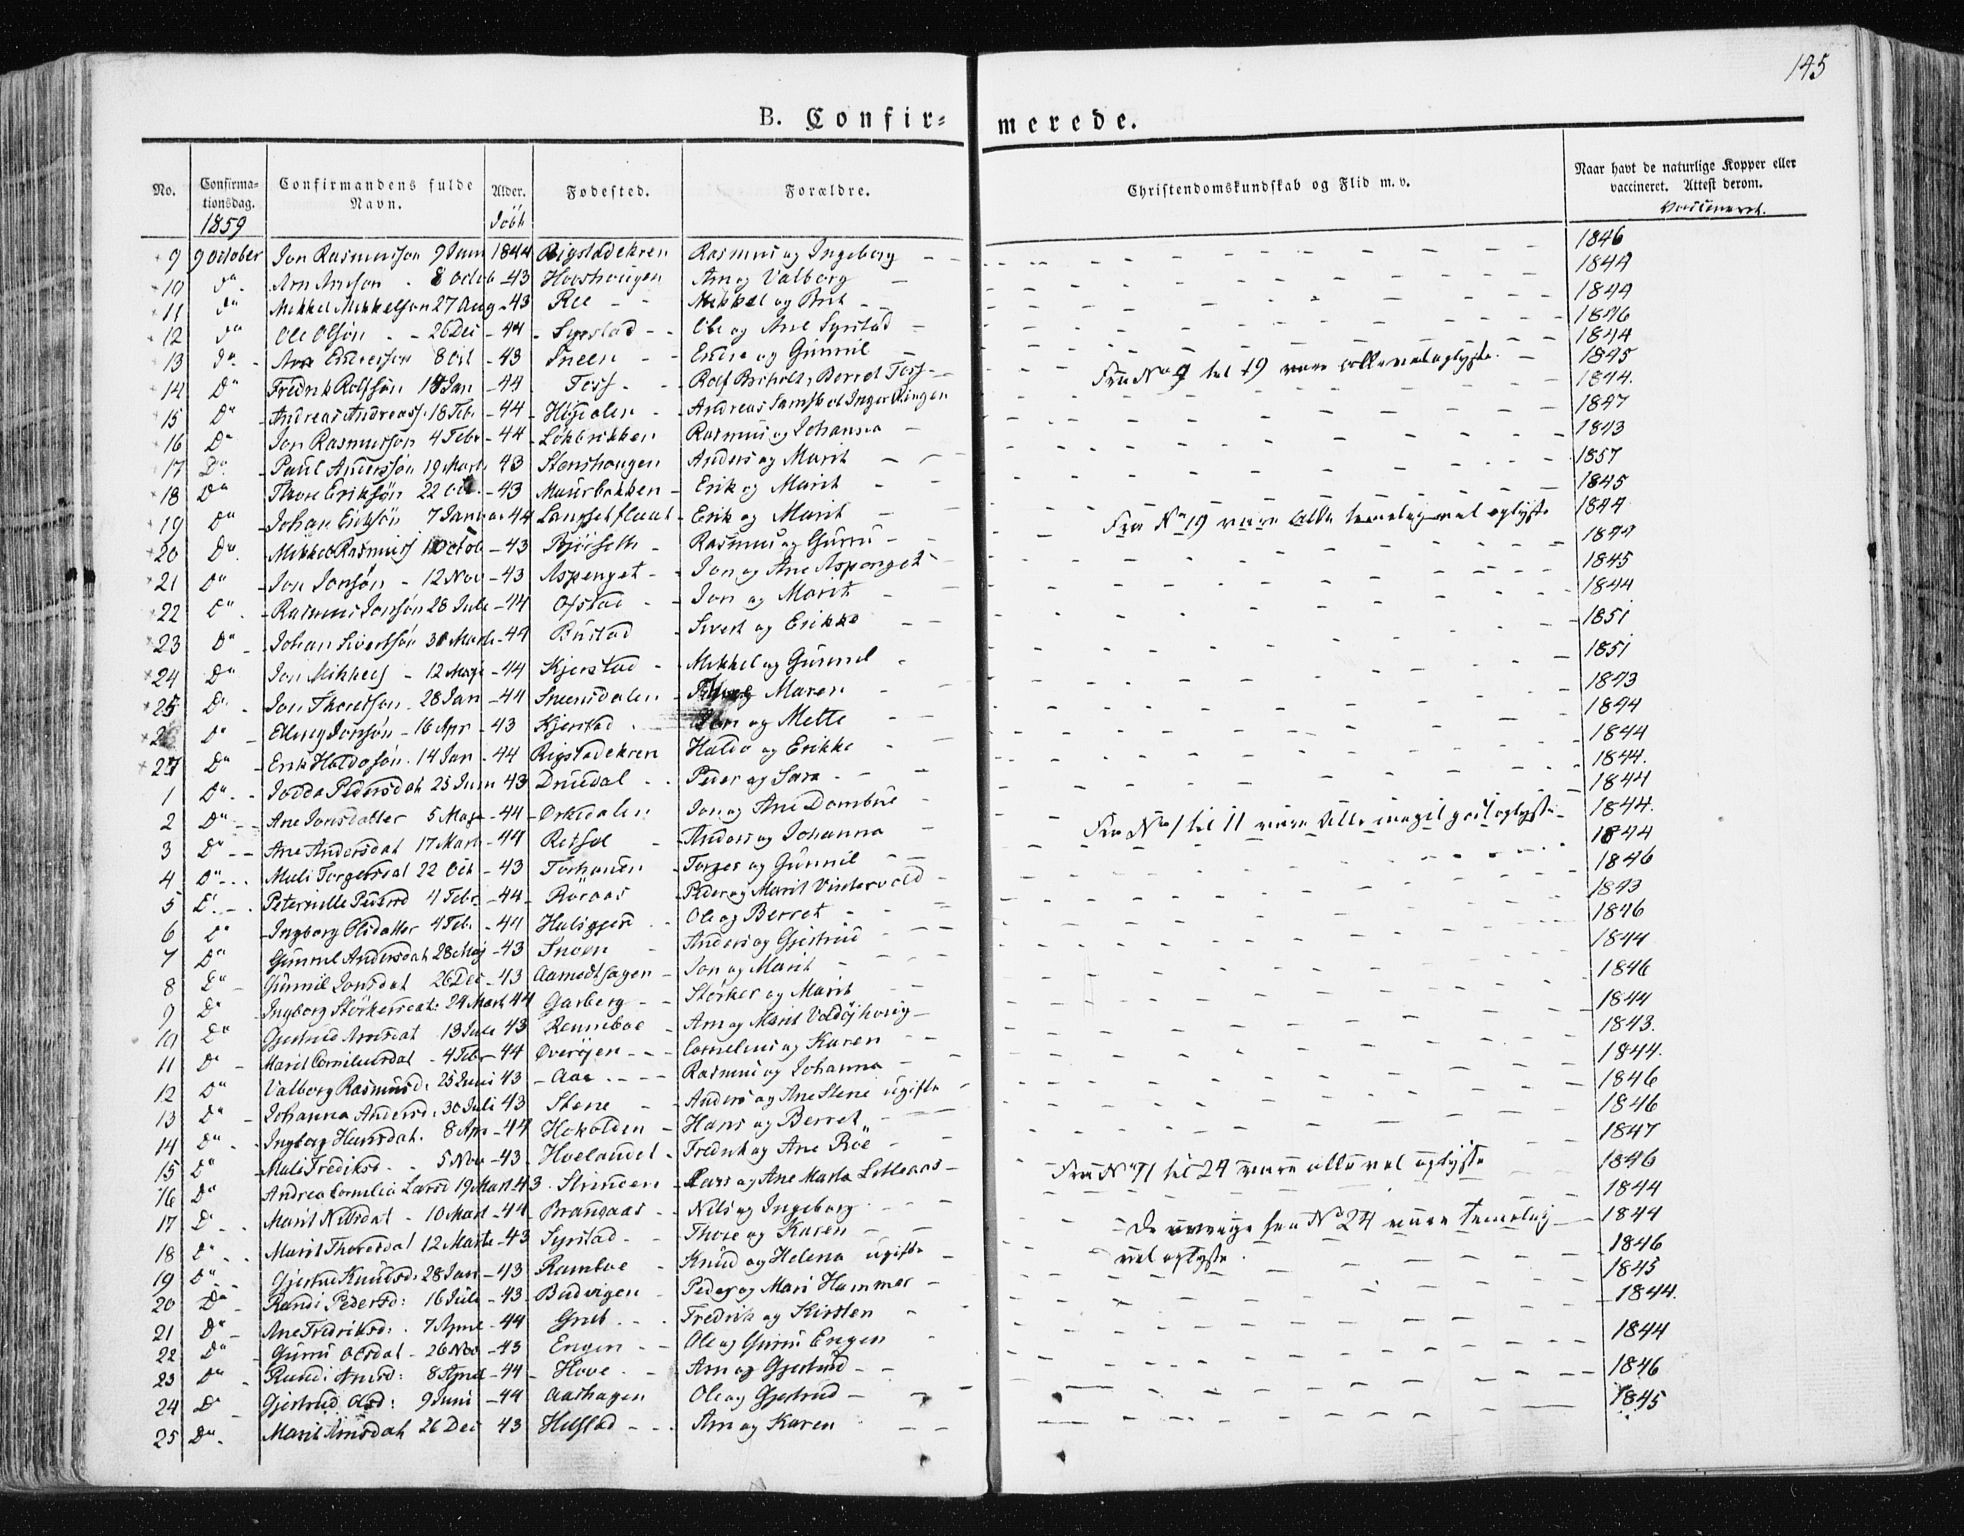 145
B. Confir- merede.
No. Confirmationsdag. Confirmandens fulde Navn. Alder. Fødested. Forældre. Christendomskundskab og Flid m. v. Naar havt de naturlige Kopper eller vaccineret. Attest derom.
1859 Vaccineret.
9 9 October Jon Rasmussøn 9 Juni 1844 Rigstadekren Rasmus og Ingeborg 1846
10 Do Arn Arnsøn 8 Octob -43 Hovshougen Arn og Valborg 1844
11 Do Mikkel Mikkelsøn 27 Aug -43 Ree Mikkel og Brit 1844
12 Do Ole Olsøn 26 Dec -44 Syrstad Ole og Ane Syrstad 1846
13 Do Endresøn 8 Oct -43 Sneen Endre og Gunnil 1844
14 Do Fredrik Rolfsøn 18 Jan -44 Toss Rolf Berret Toss Fra No 9 til 19 vare alle vel oplyste. 1845
15 Do Andreas Andreass. 18 Febr -44 Andreas Inger Ringen 1844.
16 Do Jon Rasmussøn 4 Febr -44 Løkbrikken Rasmus og Johanna 1847
17 Do Paul Anderssøn 19 Marts 43 Stenshougen Anders og Marit 1843
18 Do Thore Eriksøn 22 Oct. -43 Maurbakken Erik og Marit 1857
19 Do Johan Eriksøn 7 Januar 44 Langsetfloeat Erik og Marit 1845
20 Do Mikkel Rasmuss 1 Octob -43 Bjørseth Rasmus og Gurru Fra No 19 vare alle temelig vel oplyste 1844
21 Do Jon Jonsøn 12 Nov -43 Aspenget Jon og Ane Aspenget 1844
22 Do Rasmus Jonsøn 28 Jule -44 Ofstad Jon og Marit 1845
23 Do Johan Sivertsøn 30 Marts -44 Bustad Sivert og Erikke 1844
24 Do Jon Mikkels 12 Maje -44 Kjerstad Mikkel og Gunnil 1851
25 Do Jon Thoresøn 28 Jan -44 Sneensdalen Maren 1851
26 Do Elling Jonsøn 16 Apr -43 Kjerstad Jon og Mette 1843
27 Do Erik Haldosøn 14 Jan -44 Rigstadekren Haldo og Erikke 1844
1 Do Pedersdat 25 Juni 43 Druedal Peder og Sara 1844
2 Do Ane Jonsdatter 5 Maje -44 Orkedalen Jon og Ane Dombue 1844.
3 Do Ane Andersdat 17 Marts -44 Retsel Anders og Johanna Fra No 1 til 11 vare alle meget godt oplyste 1844
4 Do Mali Torgersdat 22 Oct -43 Torshauen Torger og Gunnil 1844.
5 Do Peternille Pedersd 4 Febr -44 Röraas Peder og Marit Vintervold 1844
6 Do Ingborg Olsdatter 4 Feb. -44 Halsgjerd Ole og Berret 1846
7 Do Gunnil Andersdat 28 Maj -43 Snoen Anders og Gjertrud 1843
8 Do Gunnil Jonsdat 26 Dec -43 Aamodtsagen Jon og Marit 1846
9 Do Ingborg Størkersdat: 24 Mart 44 Garberg Størker og Marit 1844
10 Do Gjertrud Arnsdat 13 Jule 43 Renneboe Arn og Marit Voldøjhovig 1846
11 Do Marit Corneliusdat 4 Febr -44 Overøjen Cornelius og Karen 1844
12 Do Valborg Rasmusd: 25 Juni 43 Aae Rasmus og Johanna 1843.
13 Do Johanna Andersd: 30 Juli 43 Stene Anders og Ane Stene ugifte 1844.
14 Do Ingborg Hansdat. 8 Apr -44 Hokolden Hans og Berret 1846
15 Do Mali Fredriksd. 5 Nov -43 Hoelandet Fredrik og Ane Roe 1846
16 Do Andrea Cornelia Larsd 19 Mart 43 Strinden Lars og Ane Marta Letleaas Fra No 11 til 24 vare alle vel oplyste 1847
17 Do Marit Nilsdat 10 Mart -44 Brandaas Nils og Ingeborg 1846
18 Do Marit Thoresdat 12 Marts -43 Syrstad Thore og Karen De øvrige fra No 24 vare temelig vel oplyste. 1844
19 Do Gjertru Knudsd: 28 Jan -43 Ramboe Knud og Helena ugifte 1844
20 Do Randi Pedersd: 16 Jule -43 Budvigen Peder og Mari Hammer 1846
21 Do Ane Fredriksd: 7 Aprel -44 Grut Fredrik og Kirsten 1845
22 Do Gurru Olsdat 26 Nov -43 Engen Ole og Gurru Engen 1844.
23 Do Randi Arnsd: 8 Aprel -44 Hove Arn og Gjertrud 1844
24 Do Gjertrud Olsd: 9 Juni -44 Aashagen Ole og Gjertrud 1846
25 Do Marit Arnsdat 26 Dec 43 Helstad Arn og Karen 1845